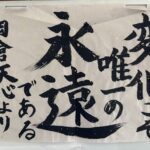 変化こそ
唯一の
永遠
である
岡倉天心より